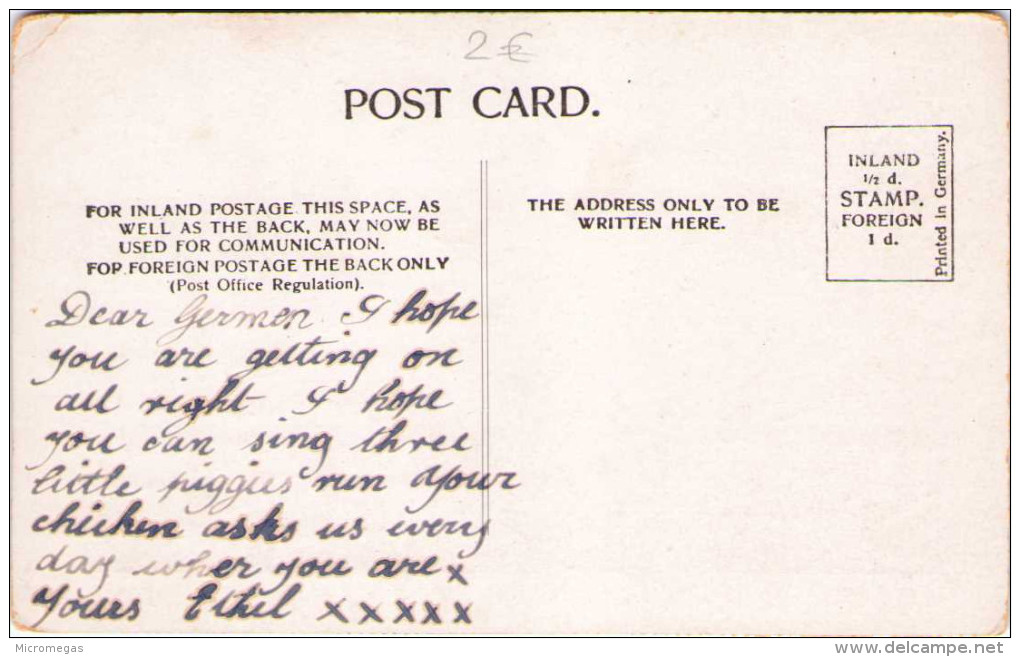 2€
POST CARD.
FOR INLAND POSTAGE THIS SPACE, AS
WELL AS THE BACK, MAY NOW BE
USED FOR COMMUNICATION.
FOR FOREIGN POSTAGE THE BACK ONLY
(Post Office Regulation).
THE ADDRESS ONLY TO BE
WRITTEN HERE.
INLAND
1/2 d.
STAMP.
FOREIGN
1 d.
Printed in Germany.
Dear Germen I hope
you are getting on
all right I hope
you can sing three
little piggies run your
chicken asks us every
day wher you are x
Yours Ethel x x x x x
Micromegas
delcampe.net